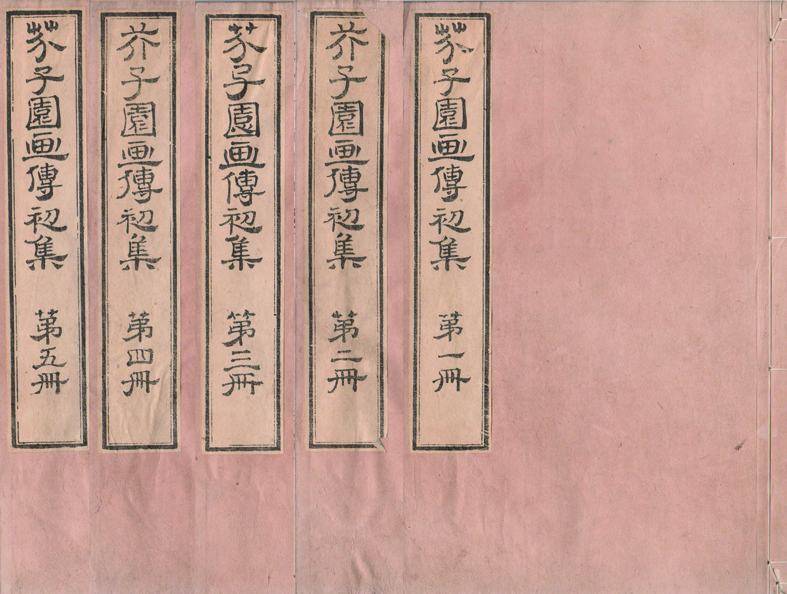 芥子園画傳初集 第一冊
芥子園画傳初集 第二冊
芥子園画傳初集 第三冊
芥子園画傳初集 第四冊
芥子園画傳初集 第五冊